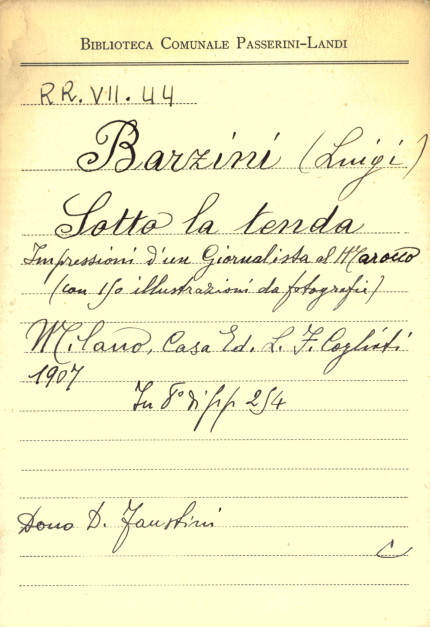 BIBLIOTECA COMUNALE PASSERINI-LANDI
RR.VII.44
Barzini (Luigi)
Sotto la tenda
Impressioni d'un Giornalista al Marocco
(con 150 illustrazioni da fotografie)
Milano, Casa Ed. L. F. Cogliati
1907
In 8° di pp 254
Dono D. Faustini
C